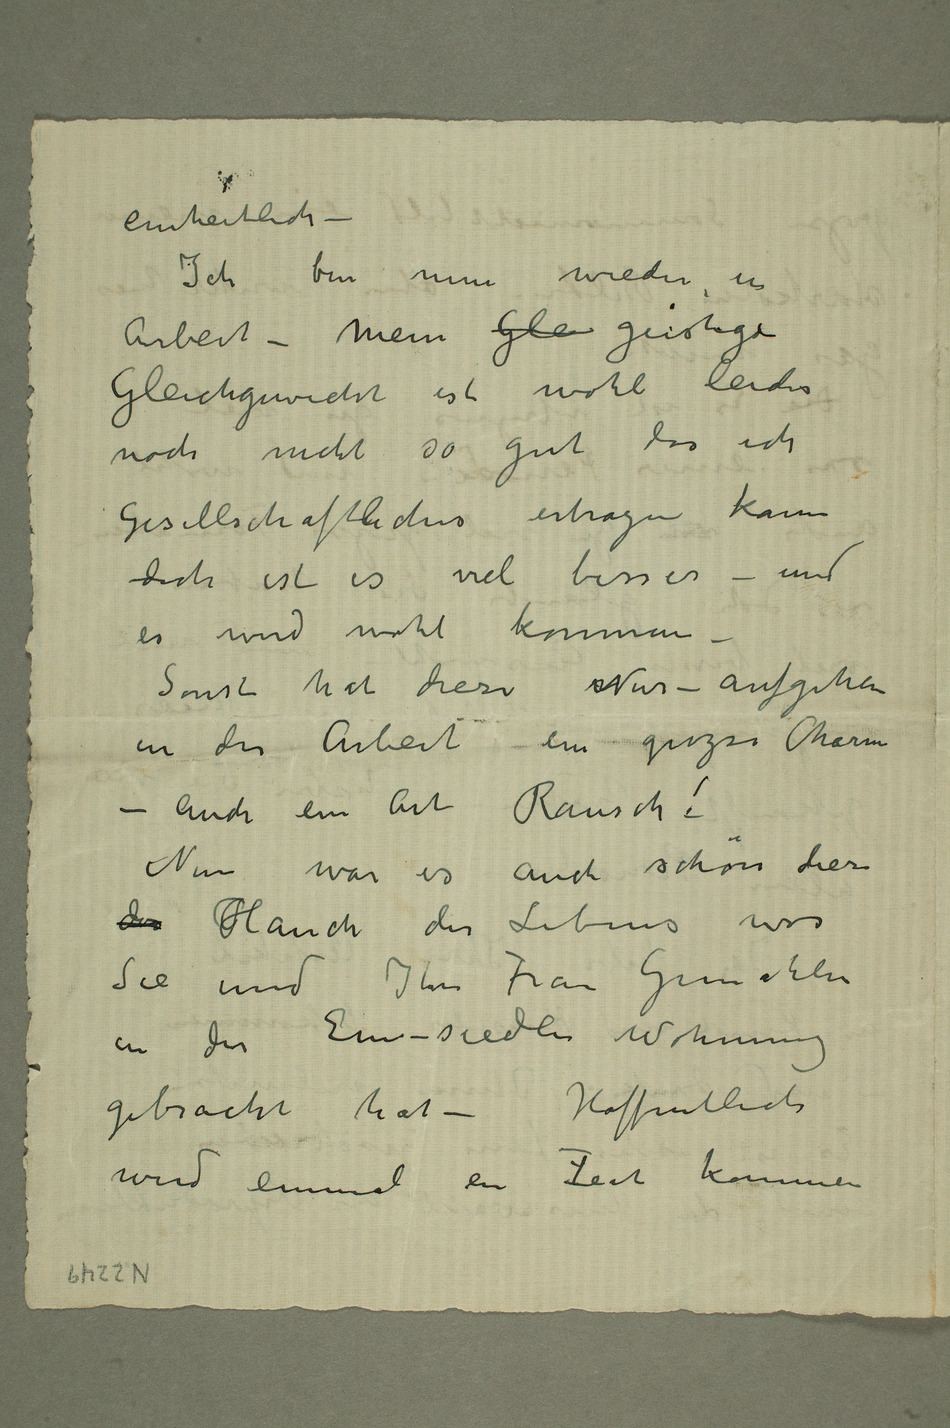 einheitlich –
Ich bin nun wieder in
Arbeit – Mein Gle geistige
Gleichgewicht ist wohl leider
noch nicht so gut das ich
Gesellschaftliches ertragen kann
doch ist es viel besser – und
es wird wohl kommen –
Sonst hat diese Nur – aufgehen
in der Arbeit ein grozse Charm
– auch ein Art Rausch!
Nun war es auch schön diese
der Hauch des Lebens was
Sie und Ihre Frau Gemahlin
in der Ein-siedler Wohnung
gebracht hat – Hoffentlich
wird einmal ein Zeit kommen
N2249